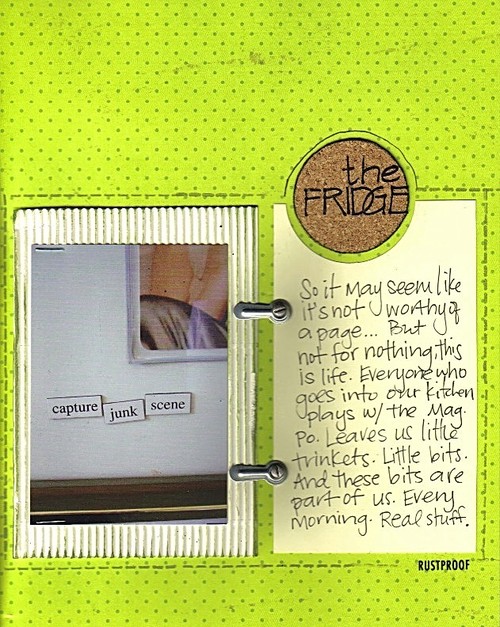 the
FRIDGE
So it may seem like
it's not worthy of
a page... But
not for nothing, this
is life. Everyone who
goes into our kitchen
plays w/ the Mag.
Po. Leaves us little
trinkets. Little bits.
And these bits are
part of us. Every
Morning. Real stuff.
capture junk scene
RUSTPROOF